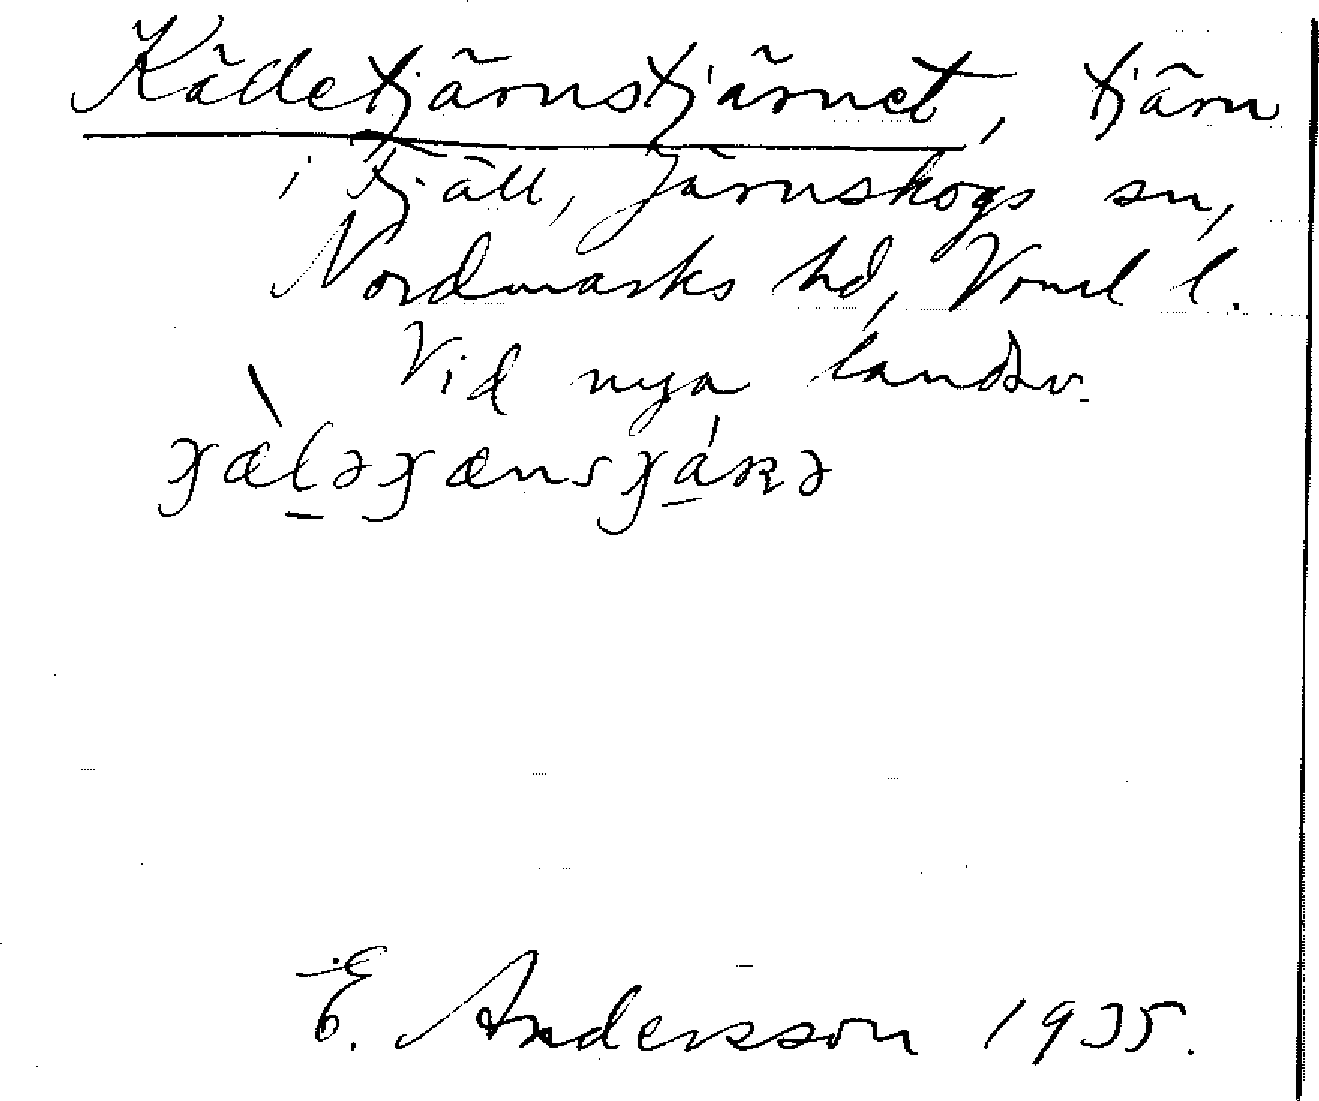 Kädetjärnstjärnet, tjärn
i Fjäll, Järnskogs sn,
Nordmarks hd, Vrml l.
Vid nya landsv.
E. Andersson 1935.